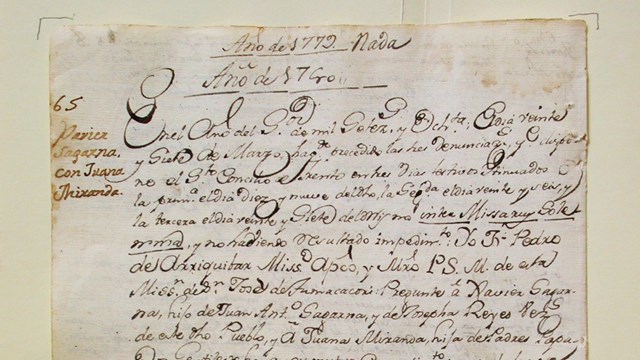 Año de 1779. Nada
Año de 1780
65
Xavier
Sagarna,
con Juana
Miranda.
En el Año del Sor de mil Setez, y Ochta; El dia veinte
y Siete de Marzo, haviendo precedido las tres denunciacs, y dispo
ne el Sto Concilio Trento en tres Dias festivos Continuados
la prima el dia Diez y nueve del dho, la Segda el dia veinte y seis, y
la tercera el dia veinte y Siete del dho mes inter Missarum Sole
mnia, y no haviendo resultado impedimto: Yo Fr Pedro
de Arriquibar Misso Apco, y Mtro P. S. M. de esta
Misn de Sn Jose de Tumacacori Pregunte a Xavier Sagar
na, hijo de Juan Anto Sagarna, y de Josepha Reyes Vezs
de este dho Pueblo, y a Juana Miranda, hija de Padres Papa